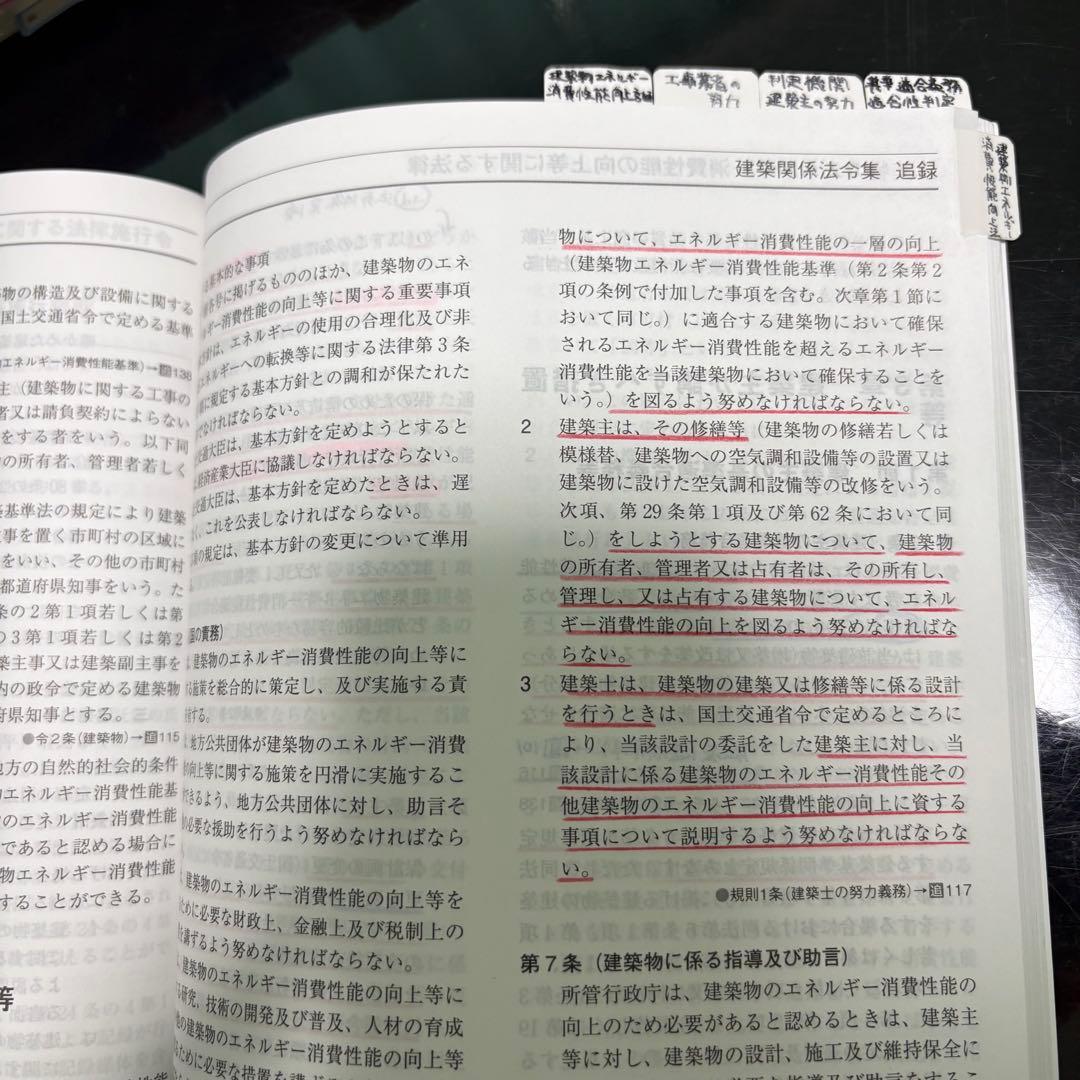 建築物エネルギー
消費性能向上計画
工事業者の
努力
判定機関
建築主の努力
基準適合義務
適合性判定
建築物エネルギー
消費性能向上法
建築関係法令集 追録
に関する法律施行令
物の構造及び設備に関する
国土交通省令で定める基準
エネルギー消費性能基準)→追138
主(建築物に関する工事の
者又は請負契約によらない
をする者をいう。以下同
の所有者、管理者若しく
基準法の規定により建築
事を置く市町村の区域に
をいい、その他の市町村
都道府県知事をいう。た
条の2第1項若しくは第
の3第1項若しくは第2
築主事又は建築副主事を
内の政令で定める建築物
府県知事とする。
●令2条(建築物)→追115
地方の自然的社会的条件
エネルギー消費性能基
のエネルギー消費性能
であると認める場合に
物エネルギー消費性能
することができる。
等
基本的な事項
各号に掲げるもののほか、建築物のエネ
ギー消費性能の向上等に関する重要事項
は、エネルギーの使用の合理化及び非
エネルギーへの転換等に関する法律第3条
に規定する基本方針との調和が保たれた
でなければならない。
交通大臣は、基本方針を定めようとすると
経済産業大臣に協議しなければならない。
交通大臣は、基本方針を定めたときは、遅
く、これを公表しなければならない。
の規定は、基本方針の変更について準用
国の責務)
、建築物のエネルギー消費性能の向上等に
る施策を総合的に策定し、及び実施する責
有する。
、地方公共団体が建築物のエネルギー消費
の向上等に関する施策を円滑に実施するこ
できるよう、地方公共団体に対し、助言そ
の必要な援助を行うよう努めなければなら
、建築物のエネルギー消費性能の向上等を
ために必要な財政上、金融上及び税制上の
を講ずるよう努めなければならない。
、建築物のエネルギー消費性能の向上等に
る研究、技術の開発及び普及、人材の育成
他の建築物のエネルギー消費性能の向上等
るために必要な措置を講
物について、エネルギー消費性能の一層の向上
(建築物エネルギー消費性能基準(第2条第2
項の条例で付加した事項を含む。次章第1節に
おいて同じ。)に適合する建築物において確保
されるエネルギー消費性能を超えるエネルギー
消費性能を当該建築物において確保することを
いう。)を図るよう努めなければならない。
2 建築主は、その修繕等(建築物の修繕若しくは
模様替、建築物への空気調和設備等の設置又は
建築物に設けた空気調和設備等の改修をいう。
次項、第29条第1項及び第62条において同
じ。)をしようとする建築物について、建築物
の所有者、管理者又は占有者は、その所有し、
管理し、又は占有する建築物について、エネル
ギー消費性能の向上を図るよう努めなければな
らない。
3 建築士は、建築物の建築又は修繕等に係る設計
を行うときは、国土交通省令で定めるところに
より、当該設計の委託をした建築主に対し、当
該設計に係る建築物のエネルギー消費性能その
他建築物のエネルギー消費性能の向上に資する
事項について説明するよう努めなければならな
い。
●規則1条(建築士の努力義務)→追117
第7条(建築物に係る指導及び助言)
所管行政庁は、建築物のエネルギー消費性能の
向上のため必要があると認めるときは、建築主
等に対し、建築物の設計、施工及び維持保全に